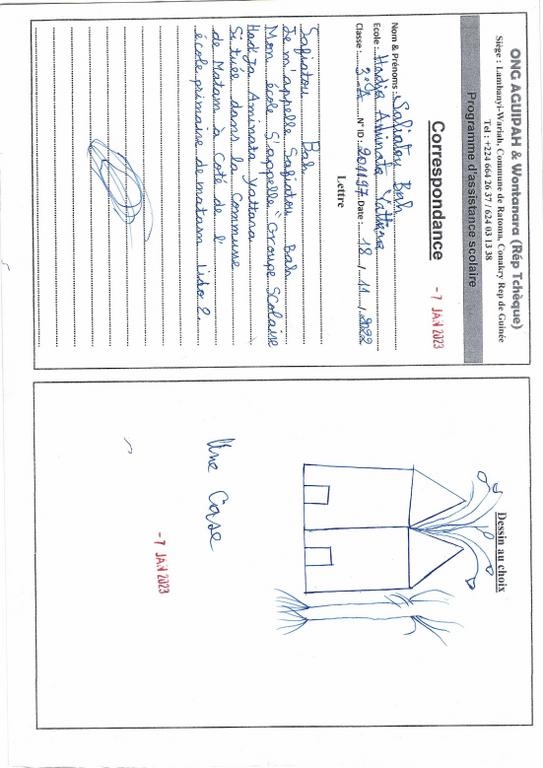 ONG AGUIPAH & Wontanara (Rép Tchèque)
Siège : Lambanyi-Wariah, Commune de Ratoma, Conakry Rep de Guinée
Tel : +224 664 26 37 / 624 03 13 38
Programme d'assistance scolaire
Correspondance
- 7 JAN 2023
Nom & Prénoms : Safiatou Bah
Ecole : Hadja Aminata Yattara
Classe : 3e A N° ID : 201197 Date : 18 / 11 / 2022
Lettre
Safiatou Bah
Je m'appelle Safiatou Bah
Mon école S'appelle "Groupe Scolaire
HadJa Aminata Yattara
Située dans la Commune
de Matam à Coté de l'
école primaire de matam Lido 2.
Dessin au choix
Une Case
- 7 JAN 2023